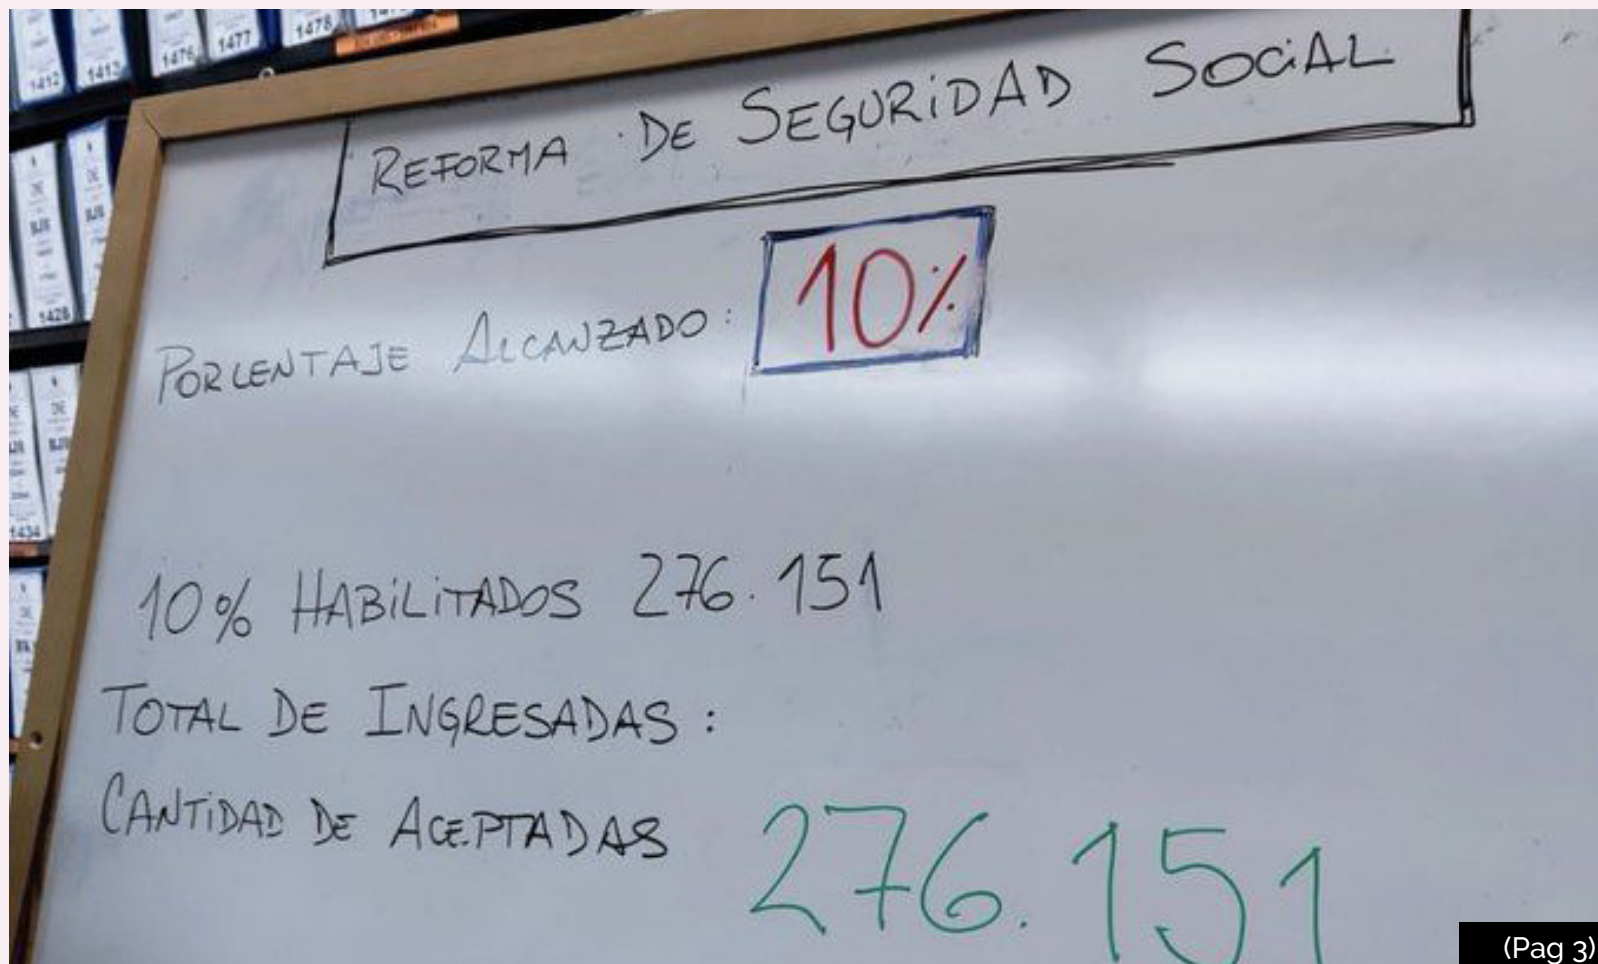 1412
1413
1476
1477
1478
REFORMA DE SEGURIDAD SOCIAL
1428
PORCENTAJE ALCANZADO: 10%
1434
10% HABILITADOS 276.151
TOTAL DE INGRESADAS:
CANTIDAD DE ACEPTADAS 276.151
(Pag 3)